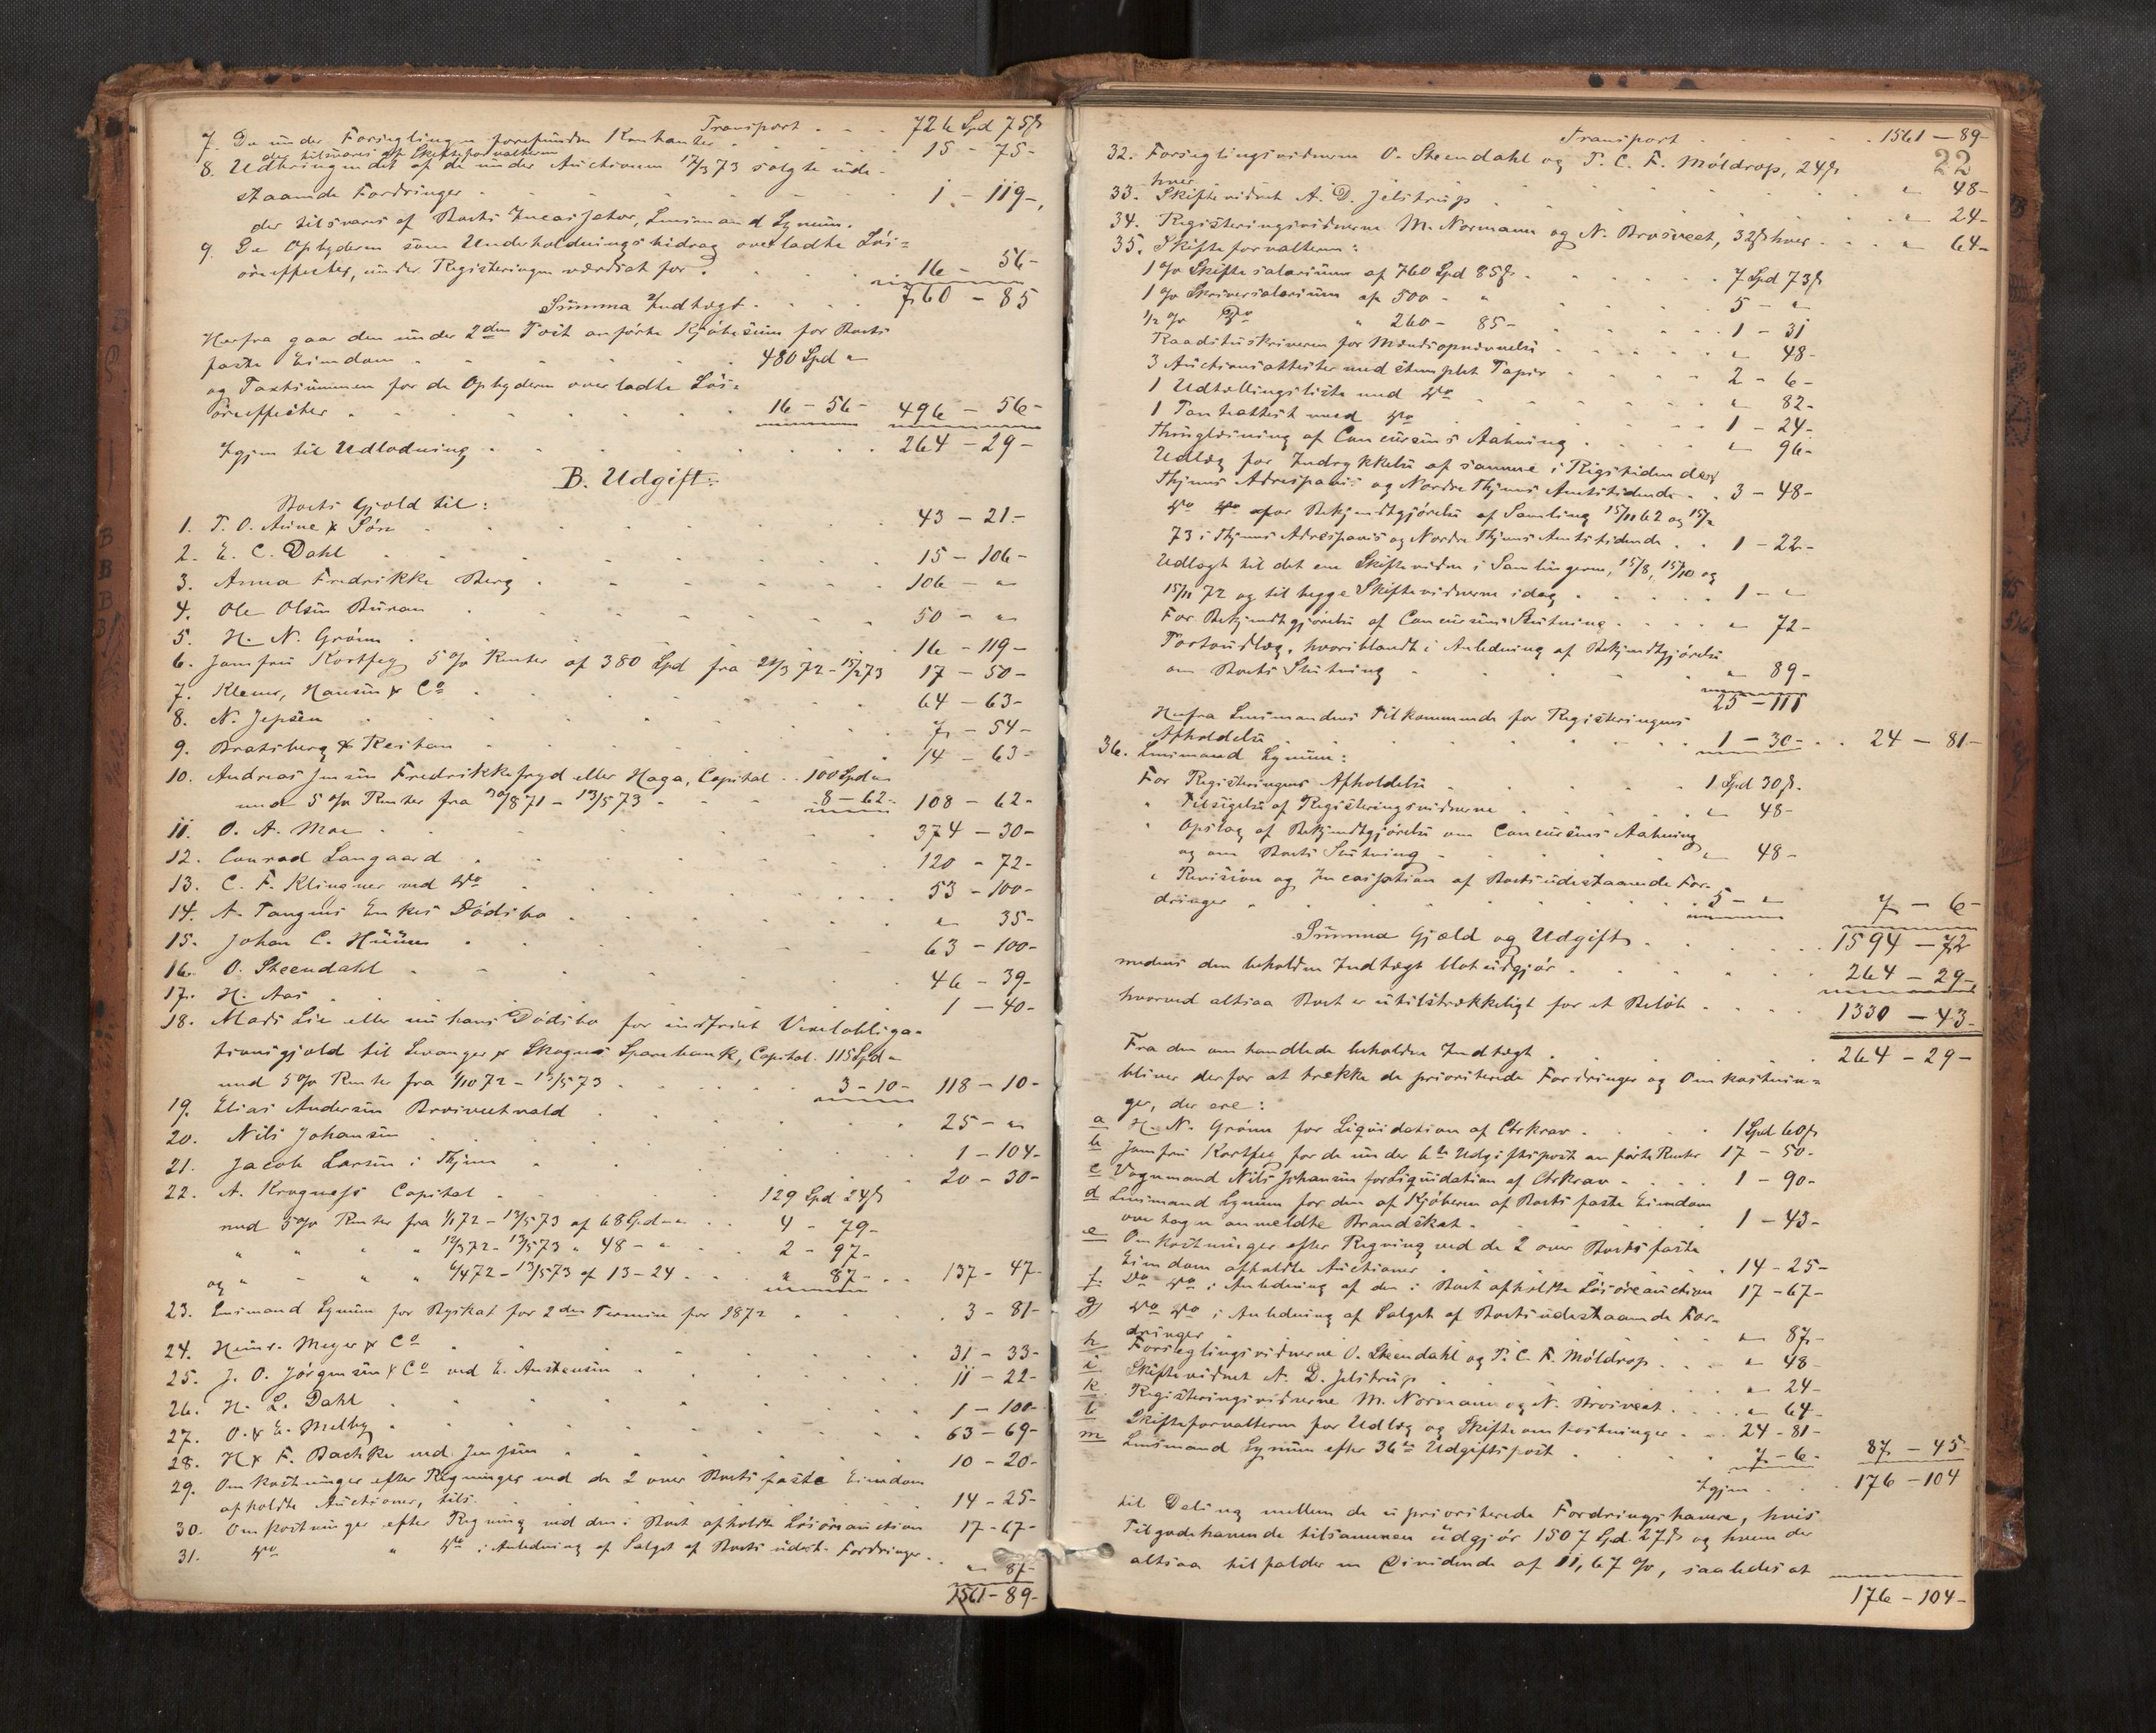 Transport . . . 726 Spd 75ß
7. De under Forseglingen forefundne Kontanter . . . 15 - 75-
der tilsvares af Skifteforvalteren
8. Udbringendet af de under Auctionen 17/3 73 solgte ude-
staaende Fordringer . . . 1 - 119-,
der tilsvares af Boets Incassator, Lensmand Lynum.
9. De Opbyderen som Underholdningsbidrag overladte Løs=
øreeffecter, under Registeringen værdsat for . . . 16 - 56-
Summa Indtægt . . . 760 - 85
Herfra gaar den under 2den Post anførte Kjøbesum for Boets
faste Eiendom . . . 480 Spd "
og Taxtsummen for de Opbyderen overladte Løs=
øreeffecter . . . 16 - 56- 496 - 56-
Igjen til Udlodning . . . 264 - 29-
B. Udgift:
Boets Gjæld til:
1. T. O. Aune & Søn . . . 43 - 21.-
2. E. C. Dahl . . . 15 - 106-
3. Anna Fredrikke Berg . . . 106 - "
4. Ole Olsen Buran . . . 50 - "
5. H. N. Grønn . . . 16 - 119-
6. Jomfru Kortfey 5 % Renter af 380 Spd fra 21/3 72 - 15/2 73 17 - 50-
7. Klener, Hansen & Co . . . 64 - 63-
8. N. Jepsen . . . 7 - 54-
9. Bratsberg & Reitan . . . 14 - 63-
10. Andreas Jensen Fredrikkefryd eller Haga, Capital . . 100 Spd "
med 5 % Renter fra 30/8 71 - 13/5 73 . . . 8 - 62- 108 - 62-
11. O. A. Moe . . . 374 - 30-
12. Conrad Langaard . . . 120 - 72-
13. C. F. Klingner ved Do . . . 53 - 100-
14. A. Tangens Enkes Dødsbo . . . " 35-
15. Johan C. Huun . . . 63 - 100-
16. O. Steendahl . . . 46 - 39-
17. H. Aas . . . 1 - 40-
18. Mads Lie eller nu hans Dødsbo for indfriet Vexelobliga-
tionsgjæld til Levanger & Skognes Sparebank, Capital 115 Spd "
med 5 % Renter fra 1/10 72 - 13/5 73 . . . 3 - 10- 118 - 10-
19. Elias Andersen Brosveetvald . . . 25 - "
20. Nils Johansen . . . 1 - 104-
21. Jacob Larsen i Thjem . . . 20 - 30-
22. A. Kragness Capital . . . 129 Spd 24ß
med 5 % Renter fra 1/1 72 - 13/5 73 af 68 Spd " . . 4 - 79-
" " " " 12/3 72 - 13/5 73 " 48 - " . . 2 - 97-
og " " " " 6/4 72 - 13/5 73 af 13 - 24 . . . " 87- . . 137 - 47-
23. Lensmand Lynum for Byskat for 2den Termin for 1872 . . . 3 - 81-
24. Heinr. Meyer & Co . . . 31 - 33-
25. J. O. Jørgensen & Co ved E. Austensen . . . 11 - 22-
26. H. L. Dahl . . . 1 - 100-
27. O. & E. Melby . . . 63 - 69-
28. H & F. Bachke ved Jenssen . . . 10 - 20-
29. Omkostninger efter Regninger ved de 2 over Boets faste Eiendom
afholdte Auctioner, tils. . . . 14 - 25-
30. Omkostninger efter Regning ved den i Boet afholdte Løsøreauction 17 - 67-
31. Do " Do i Anledning af Salget af Boets udest. Fordringer . . " 87-
1561 - 89-
Transport . . . 1561 - 89-
22
32. Forseglingsvidnerne O. Steendahl og P. C. F. Møldrop, 24ß
hver . . . " 48-
33. Skiftevidnet A. D. Jelstrup . . . " 24-
34. Registeringsvidnerne M. Normann og N. Brosveet, 32ß hver . . . " 64-
35. Skifteforvalteren:
1 % Skiftesalarium af 760 Spd 85ß . . . 7 Spd 73ß
1 % Skriversalarium af 500 - " . . . 5 - "
1/2 % Do " 260 - 85- . . . 1 - 31
Raadstuskriveren for Mændsopnævnelse . . . " 48-
3 Auctionsattester med stemplet Papir . . . 2 - 6-
1 Udtællingsliste med Do . . . " 82-
1 Pantattest med Do . . . 1 - 24-
Thinglæsning af Concursens Aabning . . . " 96-
Udlæg for Indrykkelse af samme i Rigstidenden,
Thjems Adresseavis og Nordre Thjems Amtstidende . . 3 - 48-
Do Do for Bekjendtgjørelse af Samling 15/11 62 og 15/2
73 i Thjems Adresseavis og Nordre Thjems Amtstidende . . 1 - 22-
Udlagt til det ene Skiftevidne i Samlingerne, 15/8, 15/10 og
15/11 72 og til begge Skiftevidnerne idag . . . 1 - "
For Bekjendtgjørelse af Concursens Slutning . . . " 72-
Portoudlæg, hvoriblandt i Anledning af Bekjendtgjørelse
om Boets Slutning . . . " 89-
25 - 111
Herfra Lensmandens Tilkommende for Registeringens
Afholdelse . . . 1 - 30- . . 24 - 81-
36. Lensmand Lynum:
For Registeringens Afholdelse . . . 1 Spd 30ß.
" Tilsigelse af Registeringsvidnerne . . . " 48-
" Opslag af Bekjendtgjørelse om Concursens Aabning
og om Boets Slutning . . . " 48-
" Revision og Incassation af Boets udestaaende For-
dringer . . . 5 - " 7 - 6-
Summa Gjæld og Udgift . . . 1594 - 72
medens den beholdne Indtægt blot udgjør . . . 264 - 29-
hvorved altsaa Boet er utilstrækkeligt for et Beløb . . . 1330 - 43.
Fra den omhandlede beholdne Indtægt . . . 264 - 29-
bliver derfor at trække de prioriterede Fordringer og Omkostnin=
ger, der ere:
a H. N. Grønn for Liquidation af Chrkrav . . . 1 Spd 60ß
b Jomfru Kortfey for de under 6te Udgiftspost anførte Renter 17 - 50-
c Vognmand Nils Johansen for Liquidation af Chrkrav . . . 1 - 90-
d Lensmand Lynum for den af Kjøberen af Boets faste Eiendom
overtagne anmeldte Brandskat . . . 1 - 43-
e Omkostninger efter Regning ved de 2 over Boets faste
Eiendom afholdte Auctioner . . . 14 - 25-
f. Do Do i Anledning af den i Boet afholdte Løsøreauction 17 - 67-
g) Do Do i Anledning af Salget af Boets udestaaende For-
dringer . . . " 87-
h Forseglingsvidnerne O. Steendahl og P. C. F. Møldrop . . . " 48-
i Skiftevidnet A. D. Jelstrup . . . " 24-
k Registeringsvidnerne M. Normann og N. Brosveet . . . " 64-
l Skifteforvalteren for Udlæg og Skifteomkostninger . . . 24 - 81-
m Lensmand Lynum efter 36te Udgiftspost . . . 7 - 6- 87 - 45-
Igjen . . . 176 - 104
til Deling mellem de uprioriterede Fordringshavere, hvis
Tilgodehavende tilsammen udgjør 1507 Spd 27ß og hvem der
altsaa tilfalder en Dividende af 11,67 %, saaledes at
176 - 104-